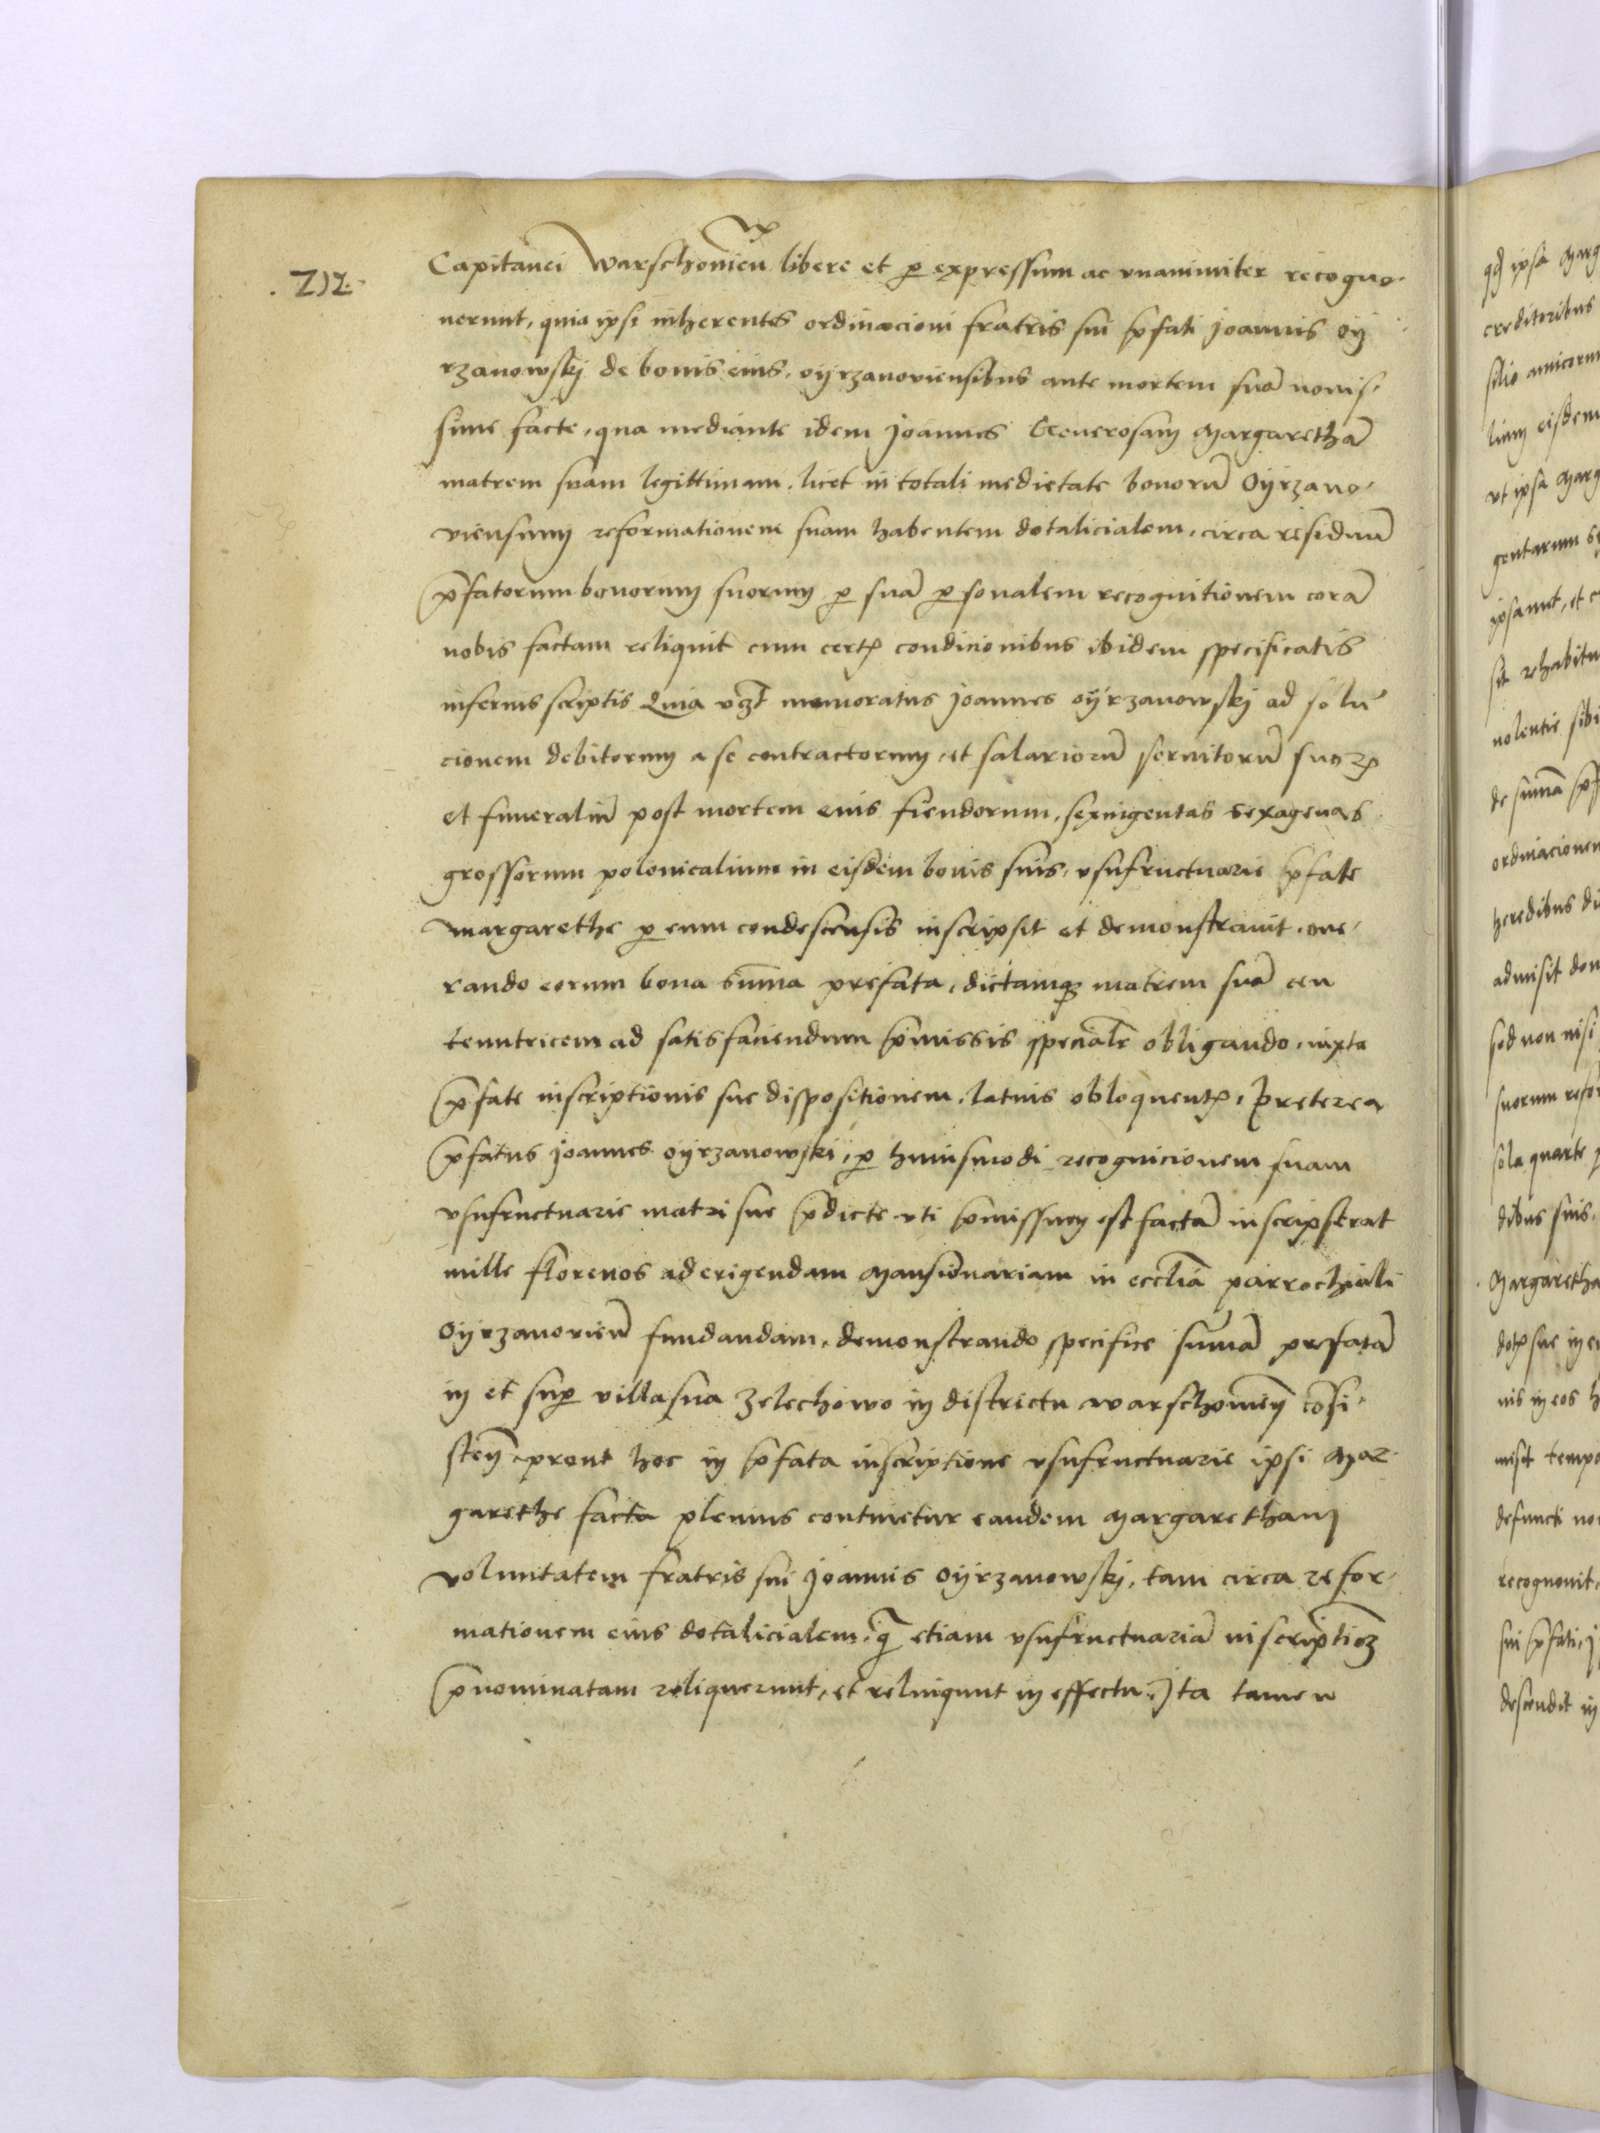 .212.
Capitanei Warschouien̄ libere et p expressum ac vnanimiter recogno-
uerunt, quia ipsi inherentes ordinacioni fratris sui p̄fati Joannis Oÿ
rzanowskj de bonis eius, oÿrzanouiensibus ante mortem suā nouis-
sime facte, qua mediante idem Joannes Generosam Margarethā
matrem suam legittimam, licet in totali medietate bonorū Oÿrzano-
uiensium reformationem suam habentem dotalicialem, circa residuū
p̄fatorum bonorum suorum p suā psonalem recognitionem corā
nobis factam reliquit cum certꝭ condicionibus ibidem specificatis
inferius scriptis Quia vꝫt memoratus Joannes oÿrzanowskj ad solu
cionem debitorum a se contractorum, et salariorū seruitorū suoꝝ
et funeraliū post mortem eius fiendorum, sexingentas sexagenas
grossorum polonicalium in eisdem bonis suis, vsufructuarie p̄fate
margarethe p eum condescensis inscripsit et demonstrauit, one-
rando eorum bona sum̄a prefata, dictamqꝫ matrem suā ceu
tenutricem ad satisfaciendum p̄missis specialr̄ obligando, iuxta
p̄fate inscriptionis sue dispositionem, latius obloquentꝭ, Preterea
p̄fatus Joannes oÿrzanowskj, p huiusmodi recognicionem suam
vsufructuarie matri sue p̄dicte vti p̄missum est factā inscripserat
mille florenos ad erigendam Mansionariam in ecclīa parrochiali
Oÿrzanouien̄ fundandam, demonstrando specifice sum̄ā prefatā
in et sup villa sua Zelechowo in districtu warschouien̄ cōsi-
sten̄, prout hec in p̄fata inscriptione vsufructuarie ipsi Mar-
garethe facta plenius continetur eandem Margaretham
voluntatem fratris sui Joannis oÿrzanowskj, tam circa refor-
mationem eius dotalicialem, q̄ etiam vsufructuariā inscriptioꝫ
p̄nominatam reliquerunt, et relinqunt in effectu, Ita tamen